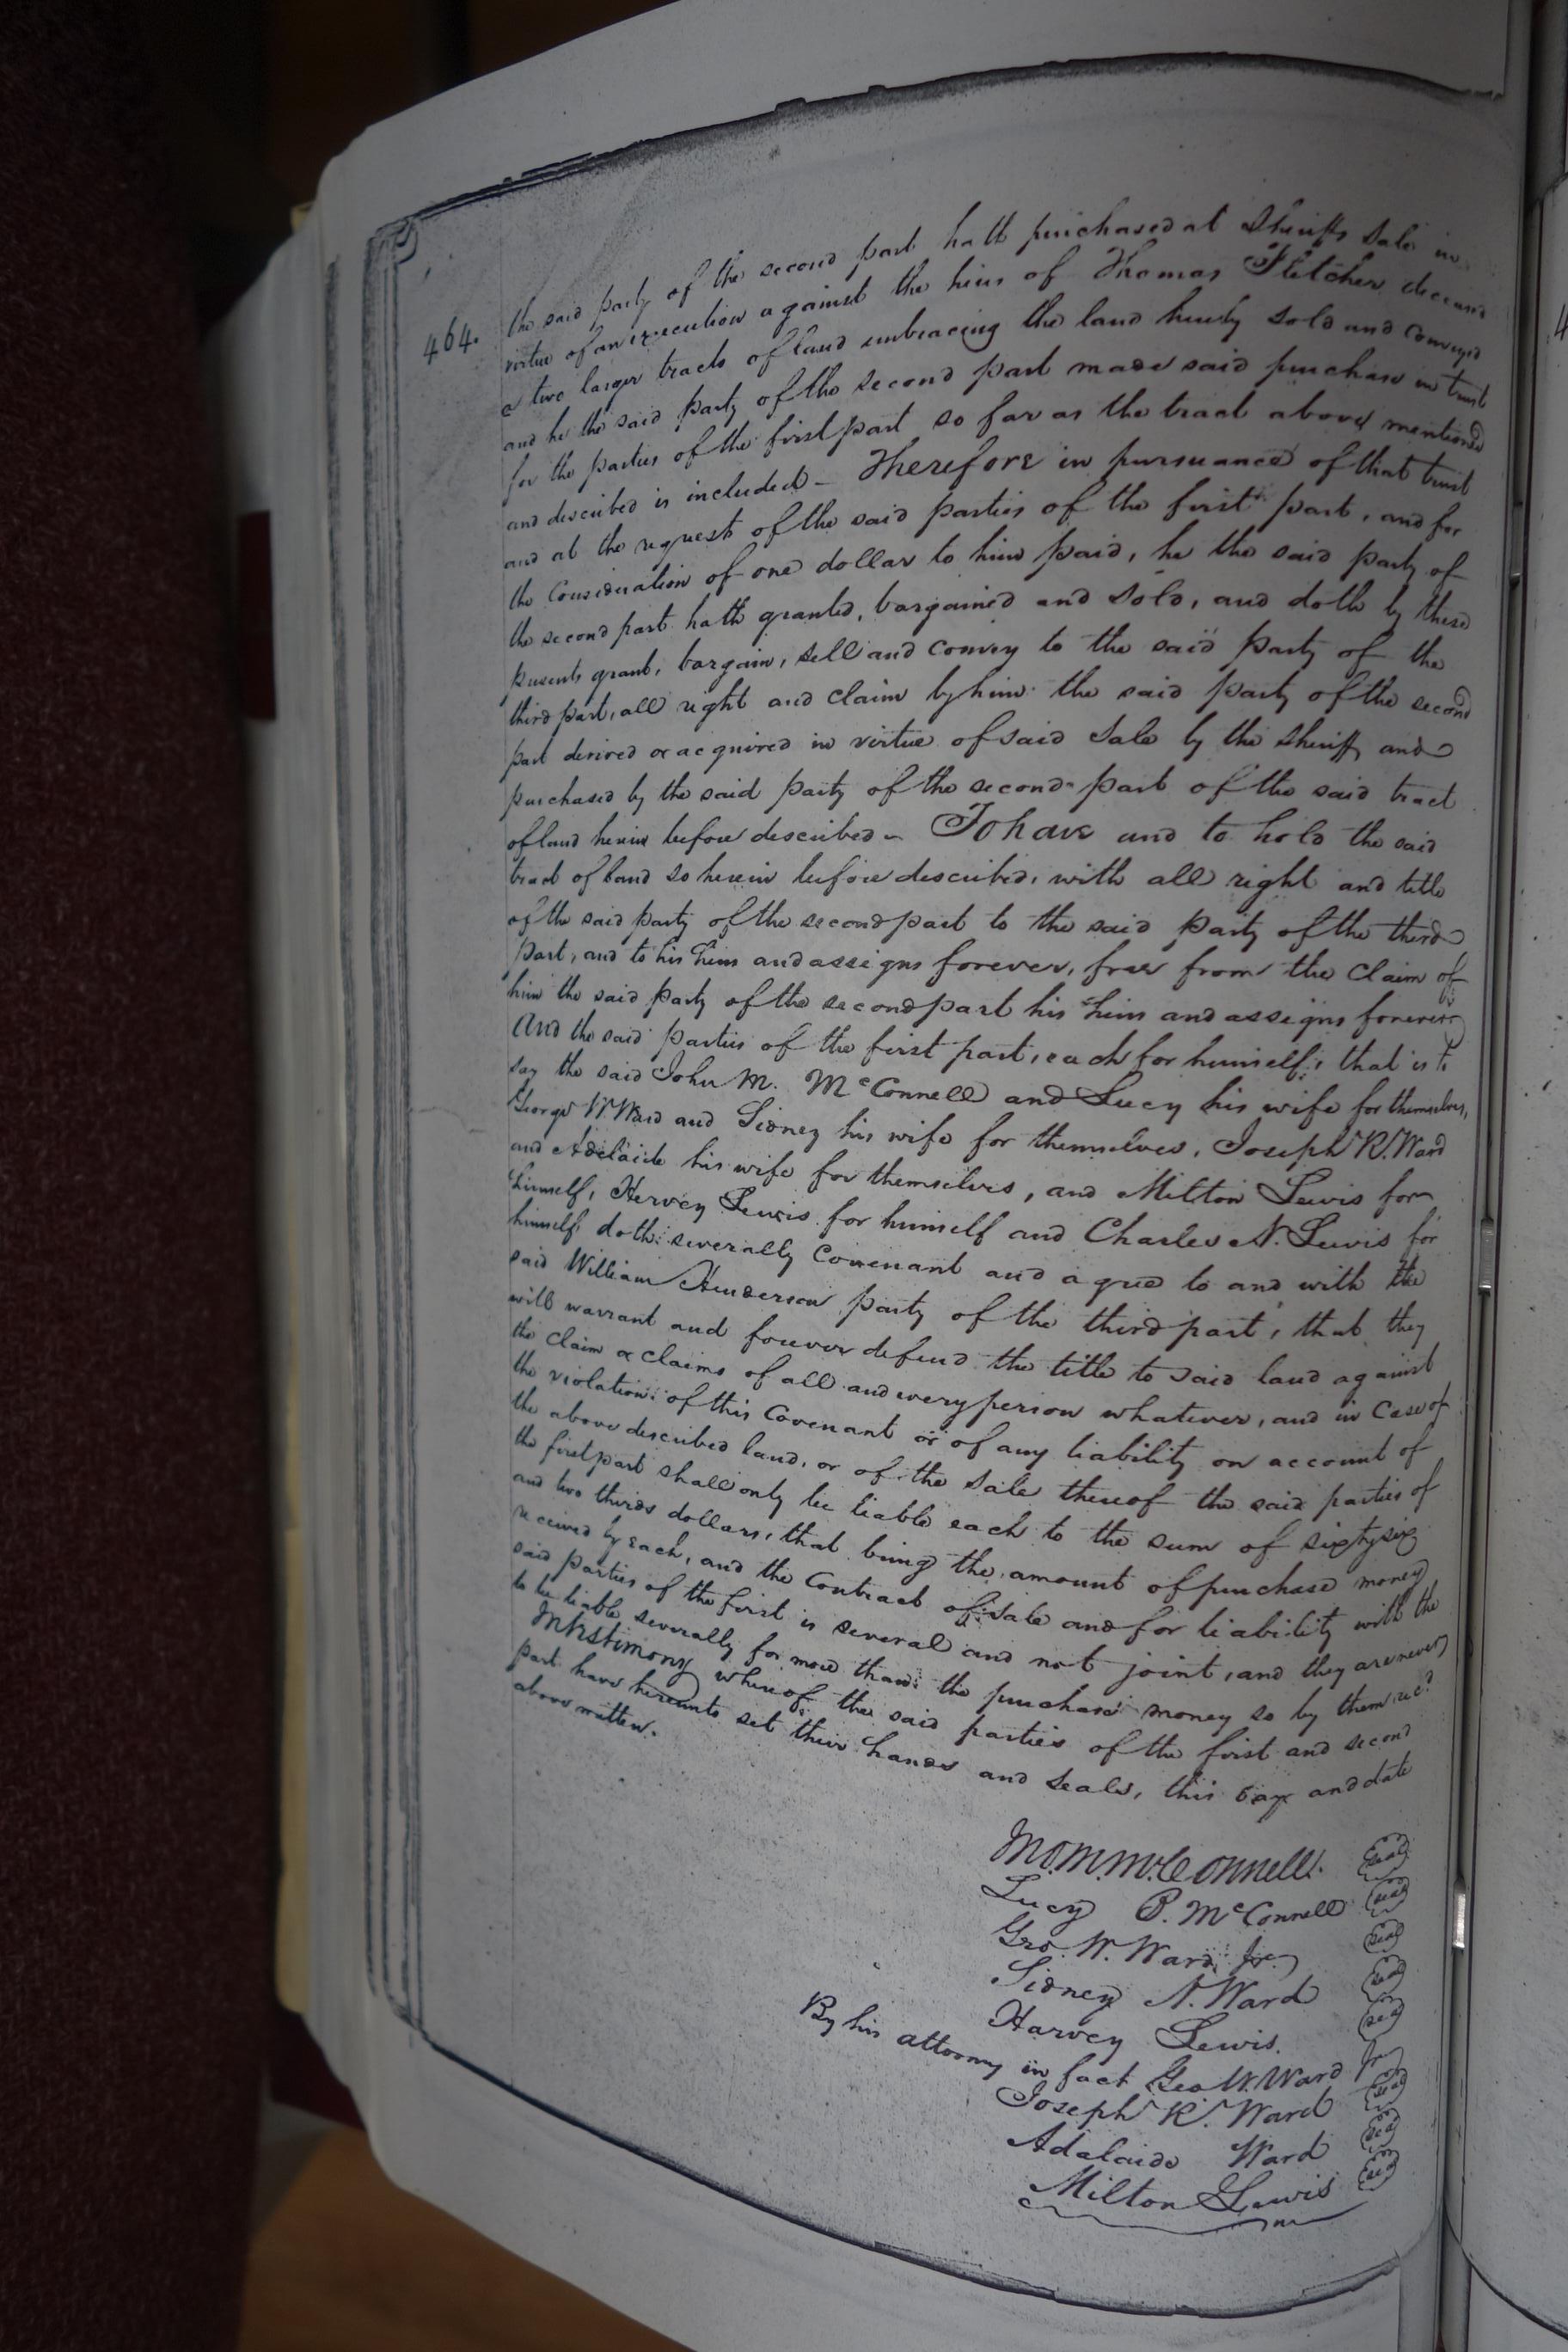 464.
the said party of the second part hath purchased at Sheriffs Sale in
virtue of an execution against the heirs of Thomas Fletcher deceased
a two larger tracts of land embracing the land hereby sold and conveyed
and he the said party of the second part made said purchase in trust
for the parties of the first part so far as the tract above mentioned
and described is included - Therefore in pursuance of that trust
and at the request of the said parties of the first part, and for
the Consideration of one dollar to him paid, he the said party of
the second part hath granted, bargained and Sold, and doth by these
presents grant, bargain, sell and convey to the said Party of the
third part, all right and claim by him the said party of the second
part derived or acquired in virtue of said Sale by the Sheriff and
purchased by the said party of the second part of the said tract
of land herein before described - To have and to hold the said
tract of land so herein before described, with all right and title
of the said party of the second part to the said party of the third
Part, and to his heirs and assigns forever, free from the claim of
him the said party of the second part his heirs and assigns forever
And the said parties of the first part, each for himself, that is to
say the said John M. McConnell and Lucy his wife for themselves,
George W Ward and Sidney his wife for themselves, Joseph R. Ward
and Adelaide his wife for themselves, and Milton Lewis for
himself, Harvey Lewis for himself and Charles N. Lewis for
himself doth severally Covenant and agree to and with the
said William Henderson party of the third part, that they
will warrant and forever defend the title to said land against
the claim or claims of all and every person whatever, and in Case of
the violation of this Covenant or of any liability on account of
the above described land, or of the Sale thereof the said parties of
the first part shall only be liable each to the sum of sixty six
and two thirds dollars, that being the amount of purchase money
received by each, and the Contract of Sale and for liability with the
said parties of the first is several and not joint, and they are never
to be liable severally for more than the purchase money so by them recd
In testimony whereof the said parties of the first and second
part have hereunto set their hands and seals, this day and date
above written.
M. McConnell. Seal
Lucy P. McConnell seal
Geo. W. Ward, Jr. seal
Sidney N. Ward seal
Harvey Lewis. seal
By his attorney in fact Geo W. Ward Jr
Joseph R. Ward seal
Adalaide Ward seal
Milton Lewis seal